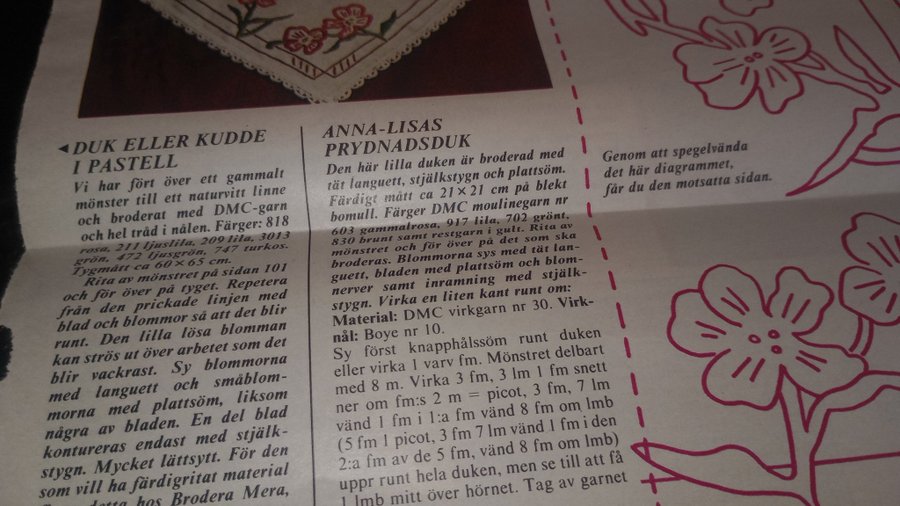 ◄DUK ELLER KUDDE
I PASTELL
Vi har fört över ett gammalt
mönster till ett naturvitt linne
och broderat med DMC-garn
och hel tråd i nålen. Färger: 818
rosa, 211 ljuslila, 209 lila, 3013
grön, 472 ljusgrön, 747 turkos.
Tygmått ca 60×65 cm.
Rita av mönstret på sidan 101
och för över på tyget. Repetera
från den prickade linjen med
blad och blommor så att det blir
runt. Den lilla lösa blomman
kan strös ut över arbetet som det
blir vackrast. Sy blommorna
med languett och småblom-
morna med plattsöm, liksom
några av bladen. En del blad
kontureras endast med stjälk-
stygn. Mycket lättsytt. För den
som vill ha färdigritat material
detta hos Brodera Mera,
ANNA-LISAS
PRYDNADSDUK
Den här lilla duken är broderad med
tät languett, stjälkstygn och plattsöm.
Färdigt mått ca 21×21 cm på blekt
bomull. Färger DMC moulinegarn nr
603 gammalrosa, 917 lila, 702 grönt,
830 brunt samt restgarn i gult. Rita av
mönstret och för över på det som ska
broderas. Blommorna sys med tät lan-
guett, bladen med plattsöm och blom-
nerver samt inramning med stjälk-
stygn. Virka en liten kant runt om:
Material: DMC virkgarn nr 30. Virk-
nål: Boye nr 10.
Sy först knapphålssöm runt duken
eller virka 1 varv fm. Mönstret delbart
med 8 m. Virka 3 fm, 3 lm 1 fm snett
ner om fm:s 2 m = picot, 3 fm, 7 lm
vänd 1 fm i 1:a fm vänd 8 fm om lmb
(5 fm 1 picot, 3 fm 7 lm vänd 1 fm i den
2:a fm av de 5 fm, vänd 8 fm om lmb)
uppr runt hela duken, men se till att få
1 lmb mitt över hörnet. Tag av garnet
Genom att spegelvända
det här diagrammet,
får du den motsatta sidan.